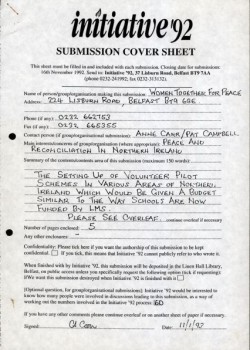 initiative '92
SUBMISSION COVER SHEET
This sheet must be filled in and included with each submission. Closing date for submissions:
16th November 1992. Send to: Initiative '92, 37 Lisburn Road, Belfast BT9 7AA
(phone 0232-241992; fax 0232-313132).
Name of person/group/organisation making this submission: WOMEN TOGETHER FOR PEACE
Address: 224 LISBURN ROAD, BELFAST BT9 6GE.
Phone (if any): 0232
Fax (if any): 0232
Contact person (if group/organisational submission): ANNE CARR/PAT CAMPBELL
Main interests/concerns of group/organisation (where appropriate) PEACE AND
RECONCILIATION IN NORTHERN IRELAND
Summary of the contents/areas of this submission (maximum 150 words)
THE SETTING UP OF VOLUNTEER PILOT
SCHEMES IN VARIOUS AREAS OF NORTHERN
IRELAND WHICH WOULD BE GIVEN A BUDGET
SIMILAR TO THE WAY SCHOOLS ARE NOW
FUNDED BY LMS.
PLEASE SEE OVERLEAF. continue overleaf if necessary
Number of pages enclosed: 5
Any other enclosures:
Confidentiality: Please tick here if you want the authorship of this submission to be kept
confidential If you tick, this means Initiative '92 cannot publicly refer to who wrote it.
When finished with by Initiative '92, this submission will be deposited in the Linen Hall Library,
Belfast, on public access unless you specifically request the following option (tick if requesting):
I/We want this submission destroyed when Initiative '92 is finished with it
[Optional question, for group/organisational submissions]: Initiative '92 would be interested to
know how many people were involved in discussions leading to this submission, as a way of
working out the numbers involved in the Initiative '92 process: 60
If you have any other comments please continue overleaf or on another sheet of paper if necessary.
Signed: Date: